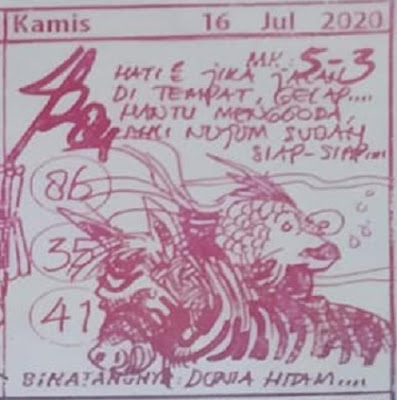 Kamis 16 Jul 2020
MK: 5-3
HATI² JIKA JALAN
DI TEMPAT, GELAP....
HANTU MENGGODA,
NUJUM SUDAH
SIAP-SIAP....
86
35
41
BINATANGNYA: DUNIA HITAM....